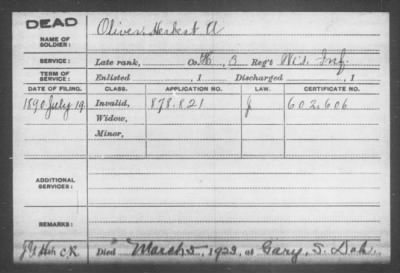 DEAD
NAME OF SOLDIER: Oliver, Herbert A
SERVICE: Late rank, Co. K, 3 Reg't Wis. Inf.
TERM OF SERVICE: Enlisted , 1 Discharged , 1
DATE OF FILING. CLASS. APPLICATION NO. LAW. CERTIFICATE NO.
1890 July 19 Invalid, 878.821 J 602.606
Widow,
Minor,
ADDITIONAL SERVICES:
REMARKS:
C.K. Died March 5, 1923, at Gary, S. Dak.